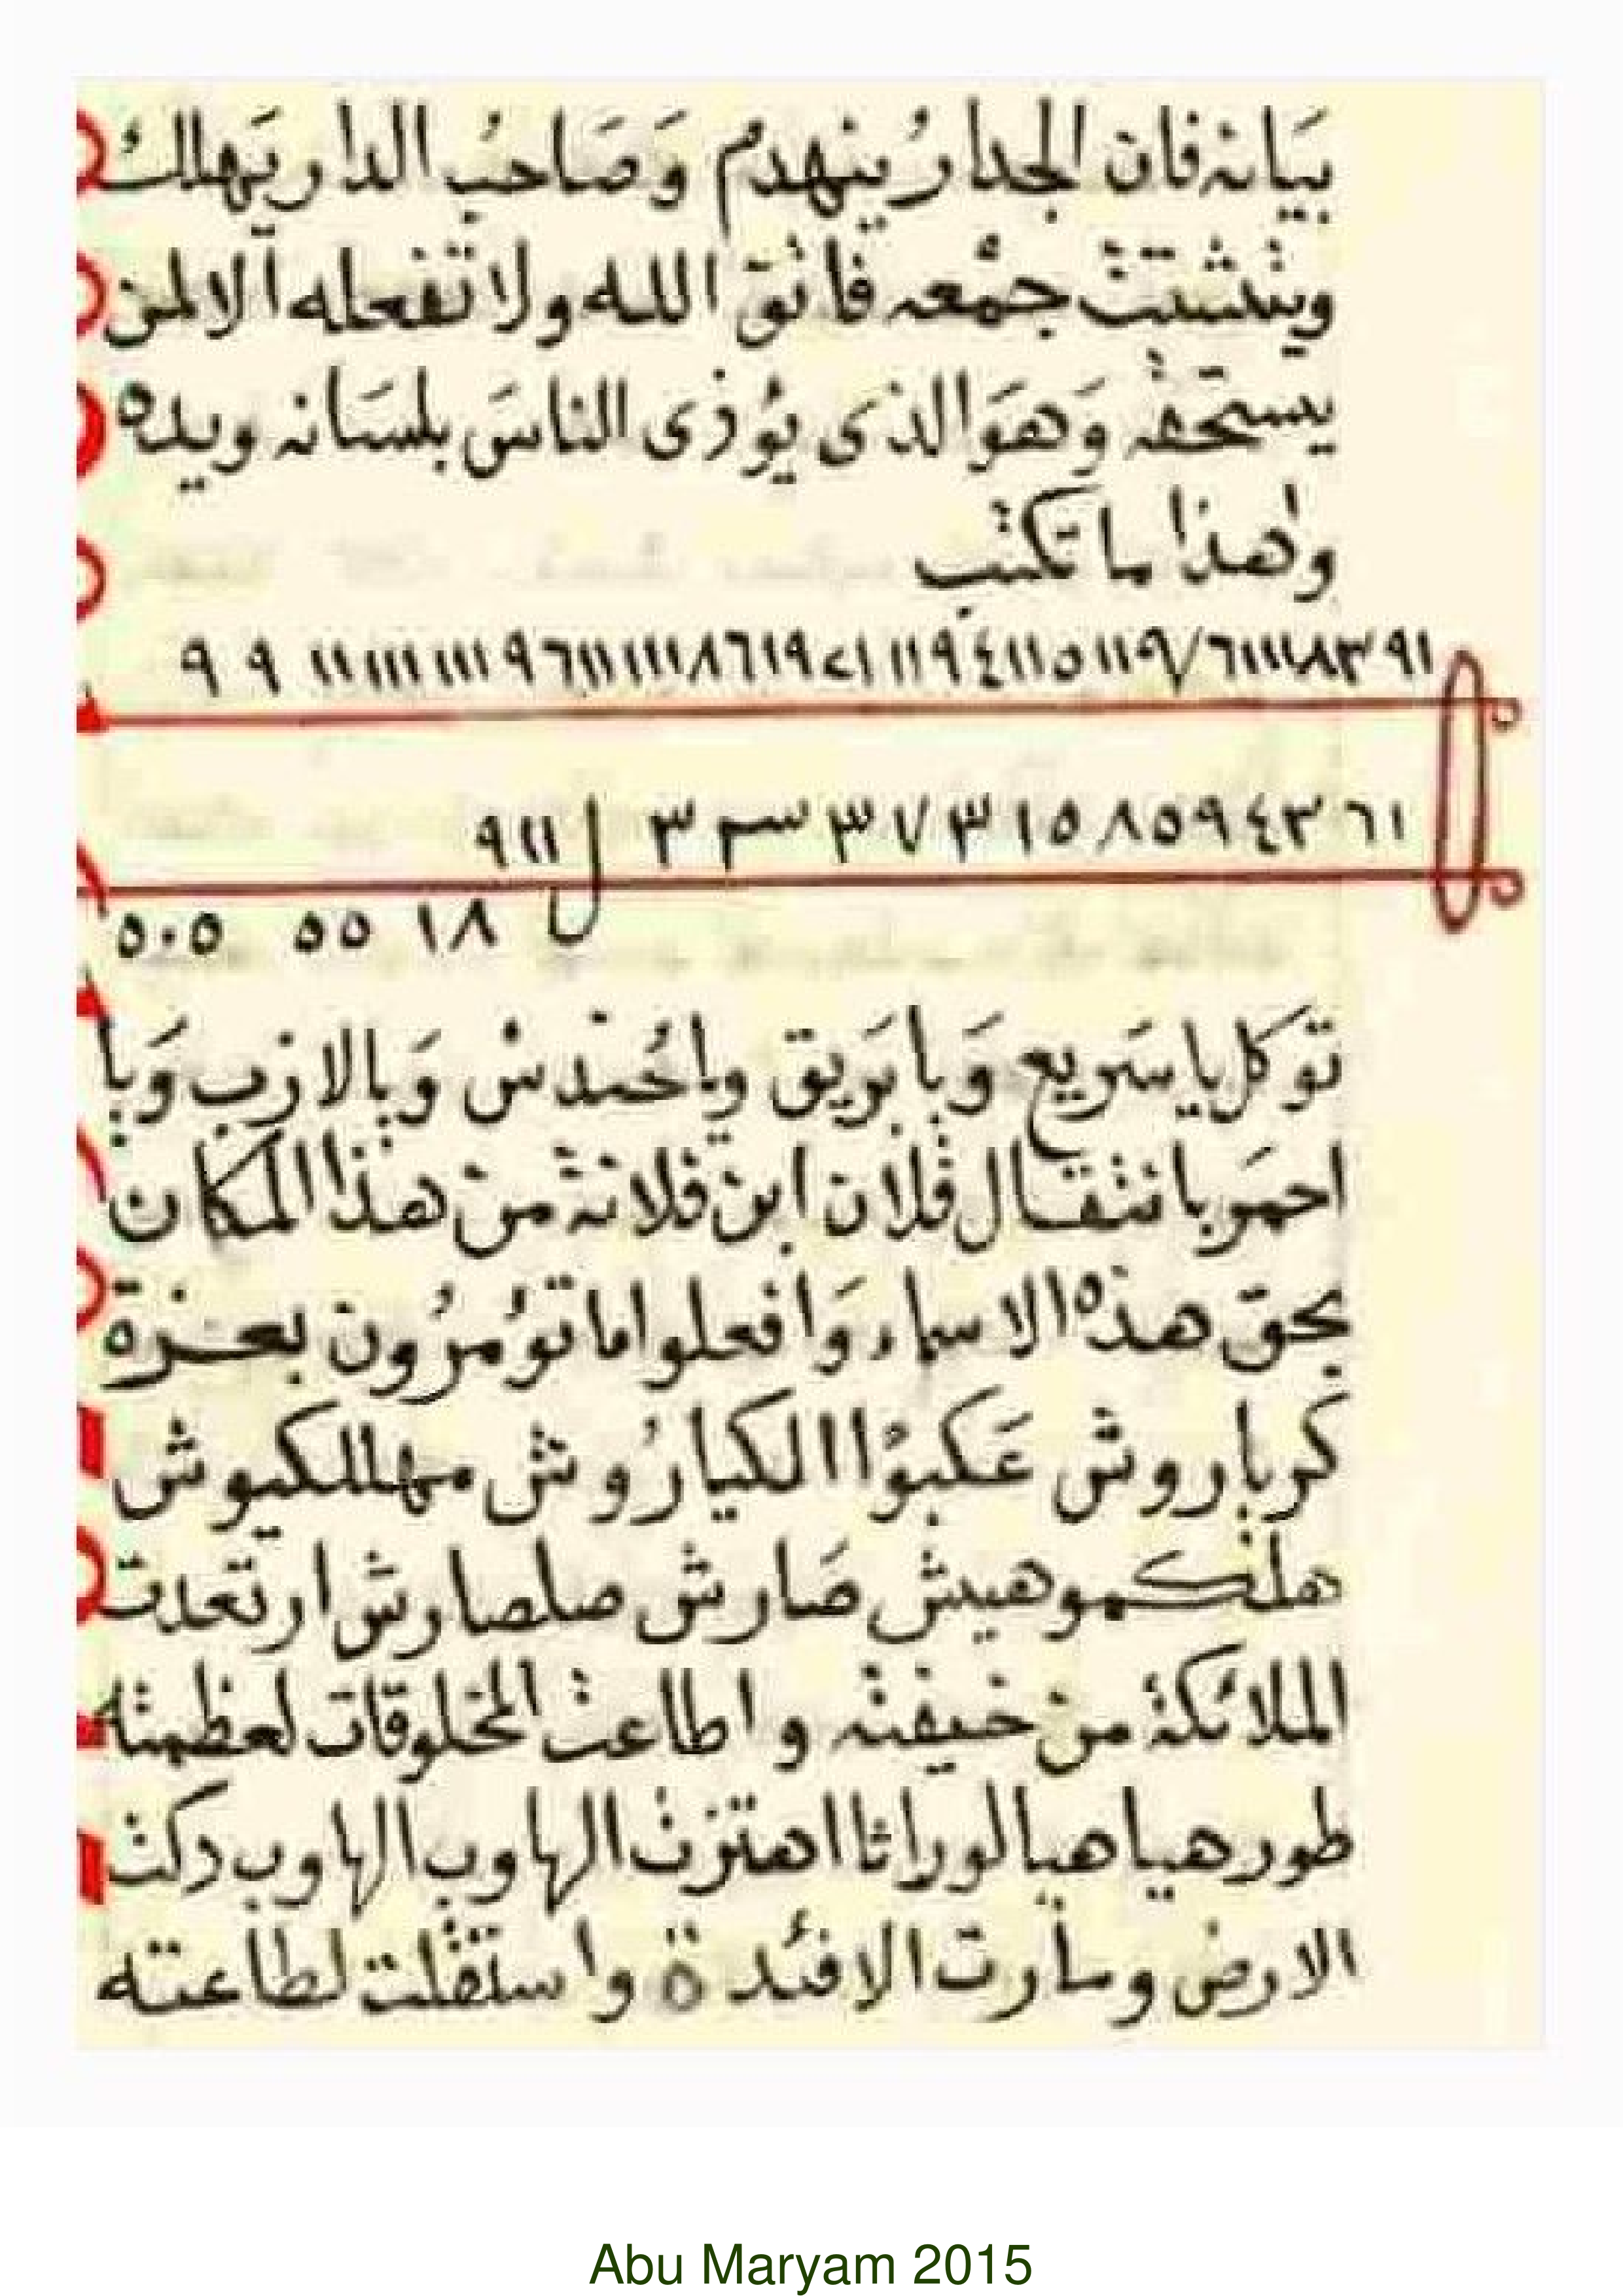 بيانه فان الجدار ينهدم وَصَاحبُ الدار يَهلك
ويتشتت جمعه فاتق الله ولا تفعله الا لمن
يستحقه وَهوَ الذى يُوذى الناسَ بلسَانه ويده
وهذا ما تكتب
١١١١١١١١١٩ ٩ ٩
٦١ ٣ ٤ ٩ ٥ ٨ ٥ ١ ٣ ٧ ٣ ٣ ل ١١ ٩
١٨ ٥٥ ٥٠٥
توكل يا سَريع وَيا بَريق ويا خُندش وَيا لازب وَيا
احمَر بانتقال فلان ابن فلانة من هذا المكان
بحق هذه الاسماء وَافعلوا ما تُومرُون بعزة
كرياروش عَكبوُا الكيارُوش مهللكيوش
هلكموهيش صَارش صلصارش ارتعدت
الملائكة من خيفته واطاعت المخلوقات لعظمته
طورهيا هيا لوراثا اهتزت الهاوب الهاوب دكت
الارض وسارت الافئدة واستقلت لطاعته
Abu Maryam 2015